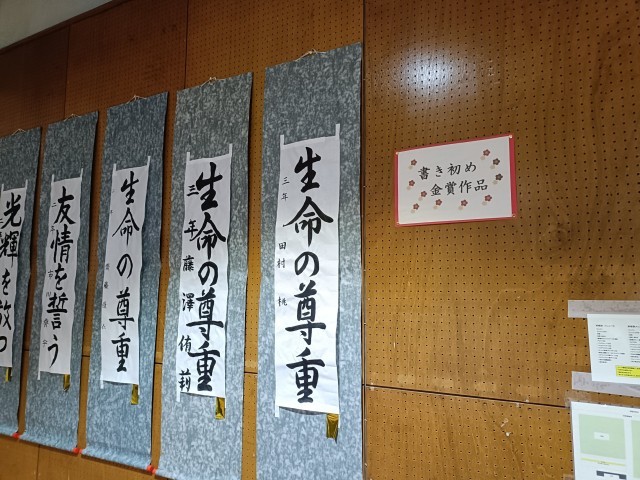 書き初め
金賞作品
生命の尊重
三年 田村 桃
生命の尊重
三年 藤澤侑莉
生命の尊重
友情を誓う
光輝を放つ